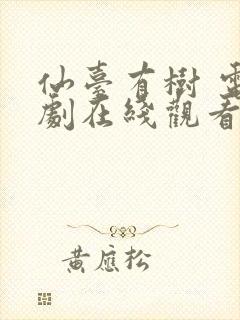 仙臺有樹 電
劇在綫觀看
黃應松